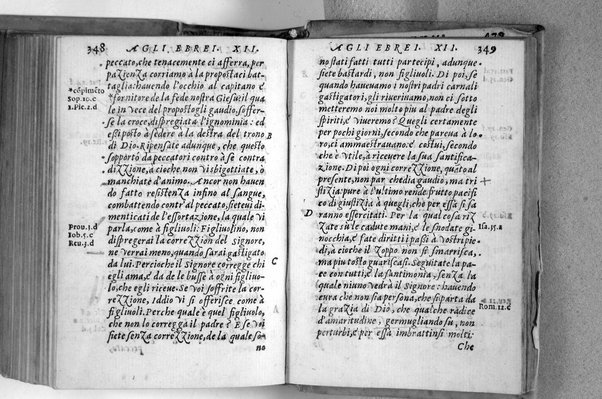 348 AGLI EBREI. XII.
peccato, che tenacemente ci afferra, per
pazienza corriamo a la propostaci bat
taglia: hauendo l'occhio al capitano e
fornitore de la fede nostra Giesu: il qua
le in vece del propostogli gaudio, soffer
se la croce, dispregiata l'ignominia: ed
è si posto à sedere à la destra del trono
di Dio. Ripensate adunque, che questo
sopportò da peccatori contro à se contra
dizzione, a cioche non visbigottiate, ò
manchiate d'animo. Ancor non hauete
do fatto resistenza infino al sangue,
combattendo contr'al peccato, siete vi di
menticati de l'essortazione, la quale vi
parla, come à figliuoli: Figliuolino, non
dispregerai la correzzion del Signore,
ne verrai meno, quando sarai gastigato
da lui. Percioche il Signore corregge chi
egli ama, è da de le busse à ogni figliuo-
lo, che egli riceue. Se voi soffrite la cor-
rezzione, Iddio vi si offerisce come à
figliuoli. Perche quale è quel figliuolo,
che non lo corregga il padre è E se voi
siete senza correzzione, de la quale so-
no
cōpimēto
Sop. 10. c
1. Pie. 2. d
Prou. 3. d
Iob. 5. c
Reu. 3. d
B
C
AGLI EBREI. XII. 349
no stati fatti tutti partecipi, adunque
siete bastardi, non figliuoli. Di poi, se
quando haueuamo i nostri padri carnali
gastigatori, gli riueriuamo, non ci sotto
metteremo noi molto piu al padre degli
spiriti, è viueremo? Quegli certamente
per pochi giorni, secondo che parea à lo-
ro, ci ammaestrauano: è costui, secondo
che è vtile, à riceuere la sua santifica-
zione. Di poi ogni correzzione, quāto al
presente, non par che dia gaudio, ma tri
stizia: pure à l'ultimo rende frutto pacifi
co di giustizia à quegli, che per essa si sa
ranno essercitati. Per la qual cosa riz
zate sù le cadute mani, è le snodate gi-
nocchia, è fate diritti i passi à vostri pie-
di, à cioche il zoppo non si smarrisca,
ma piu tosto guarisca si. Seguitate la pa-
ce con tutti, è la santimonia, senza la
quale niuno vedrà il Signore: hauendo
cura che non sia persona, che si parta da
la grazia di Dio, che qualche radice
d'amaritudine, germugliando sù, non
perturbi, è per essa imbrattinsi molti:
Che
D
Isa. 35. a
Rom. 12. c